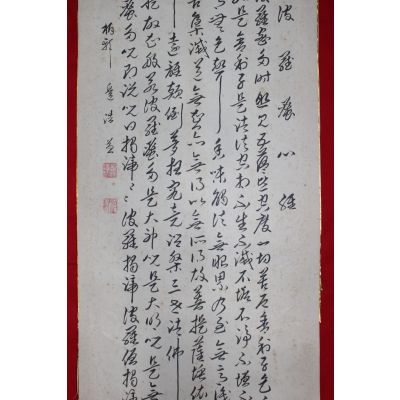 波羅蜜心經
波羅蜜多時照見五蘊皆空度一切苦厄舍利子色
如是舍利子是諸法空相不生不滅不垢不淨不增
無色聲香味觸法無眼界乃至無意識
苦集滅道無智亦無得以無所得故菩提薩埵依
遠離顛倒夢想究竟涅槃三世諸佛
提故知般若波羅蜜多是大神呪是大明呪是無
蜜多呪即說呪曰揭諦〻〻波羅揭諦波羅僧揭諦